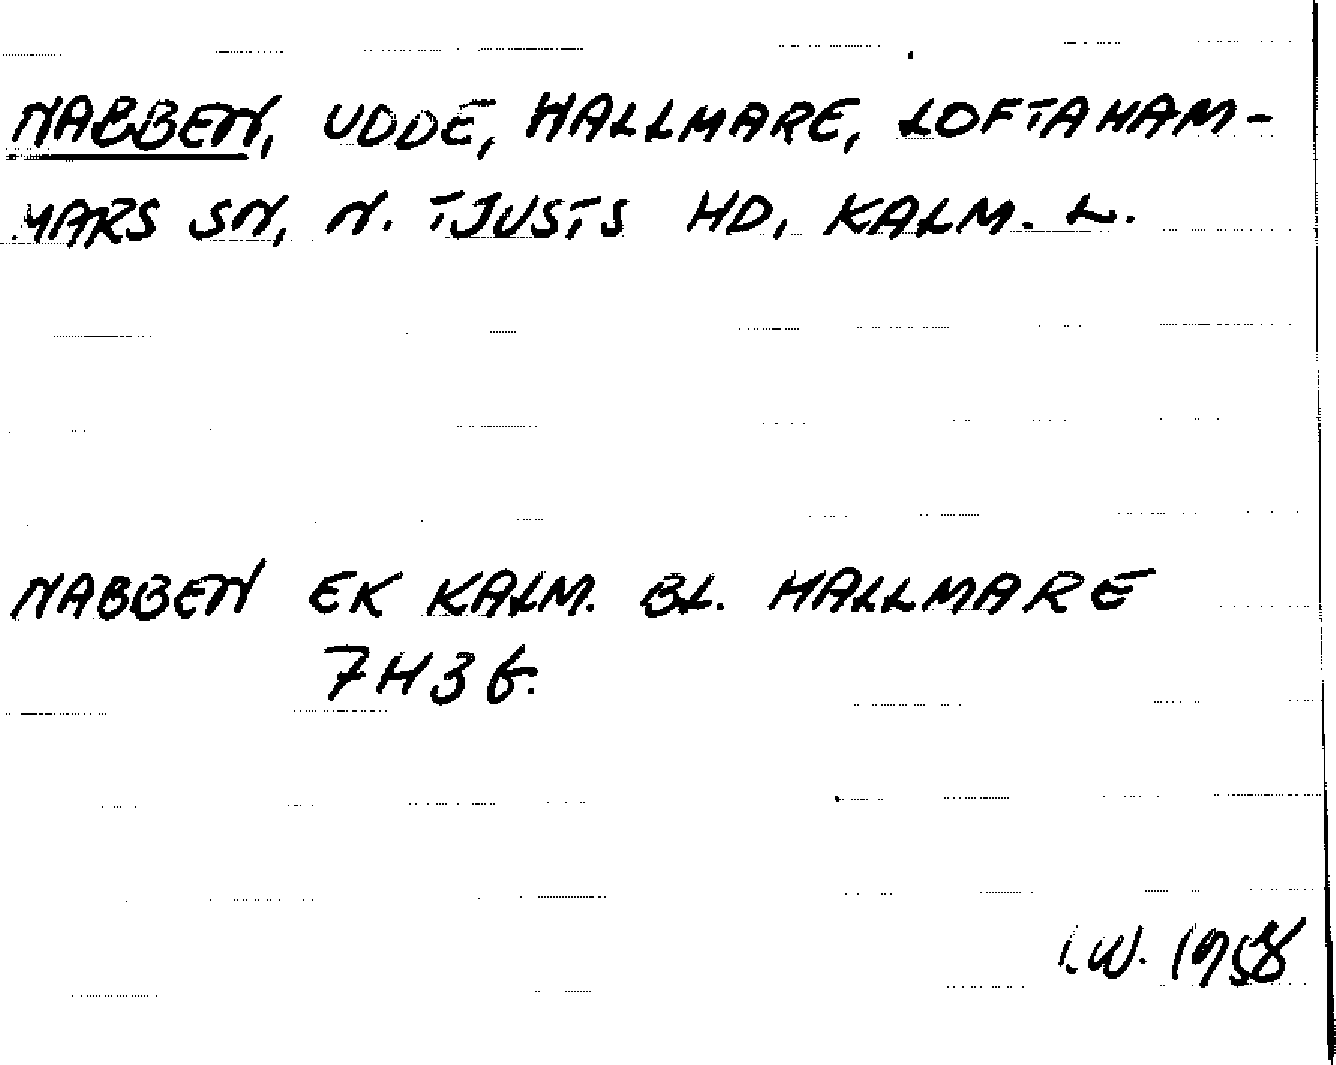 NABBEN, UDDE, HALLMARE, LOFTAHAM-
MARS SN, N. TJUSTS HD, KALM. L.
NABBEN EK KALM. BL. HALLMARE
7H3G.
I.W. 1958